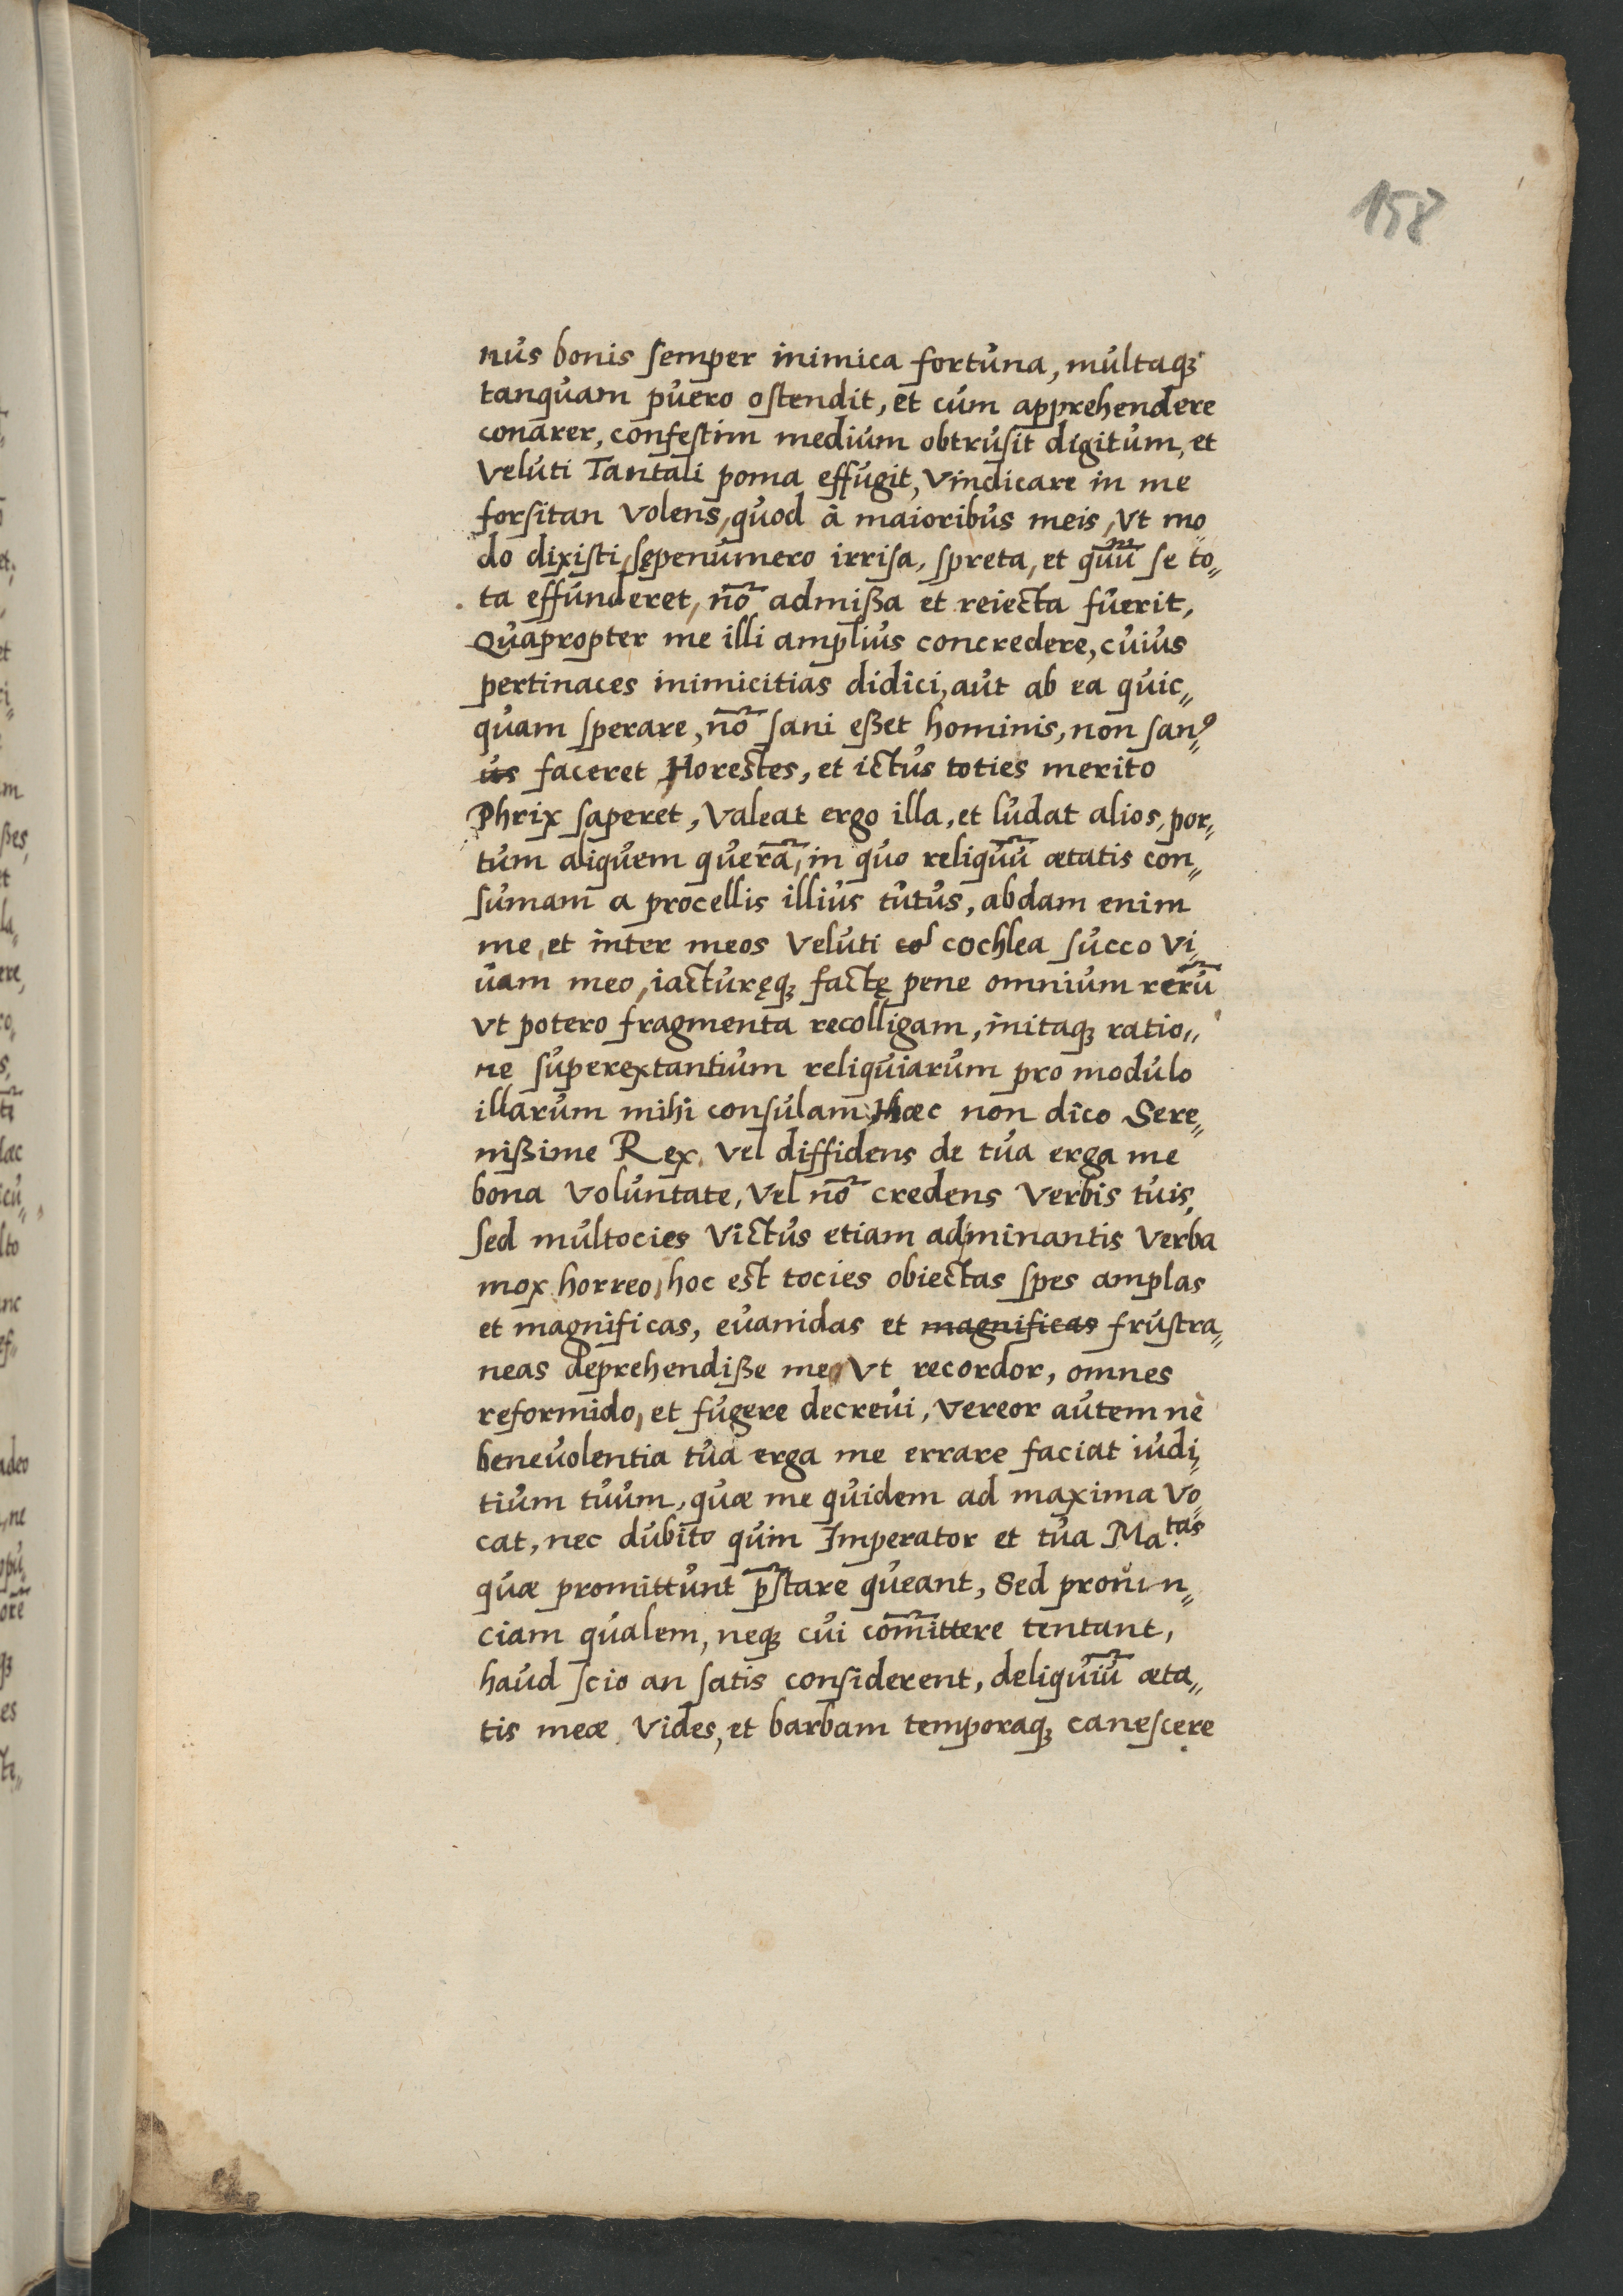 158
nus bonis semper inimica fortuna, multaqꝫ
tanquam puero ostendit, et cum apprehendere
conarer, confestim medium obtrusit digitum, et
veluti Tantali poma effugit, vindicare in me
forsitan volens, quod à maioribus meis, vt mo„
do dixisti, sępenumero irrisa, spreta, et quū se to„
ta effunderet, nō admißa et reiecta fuerit,
Quapropter me illi amplius concredere, cuius
pertinaces inimicitias didici, aut ab ea quic„
quam sperare, nō sani eßet hominis, non sanꝰ
~~us~~ faceret Horestes, et ictus toties merito
Phrix saperet, Valeat ergo illa, et ludat alios, por„
tum aliquem querā, in quo reliquū ætatis con„
sumam a procellis illius tutus, abdam enim
me, et inter meos veluti ~~col~~ cochlea succo vi„
uam meo, iacturęqꝫ factę pene omnium rerū
vt potero fragmenta recolligam, initaqꝫ ratio„
ne superextantium reliquiarum pro modulo
illarum mihi consulam, Hæc non dico Sere„
nißime Rex, vel diffidens de tua erga me
bona voluntate, vel nō credens verbis tuis,
sed multocies victus etiam adminantis verba
mox horreo, hoc est tocies obiectas spes amplas
et magnificas, euanidas et ~~magnificas~~ frustra„
neas deprehendiße me, vt recordor, omnes
reformido, et fugere decreui, vereor autem nè
beneuolentia tua erga me errare faciat iudi„
tium tuum, quæ me quidem ad maxima vo„
cat, nec dubito quin Imperator et tua Ma.tas
quæ promittunt p̄stare queant, Sed prouin„
ciam qualem, neqꝫ cui com̄ittere tentant,
haud scio an satis considerent, deliquiū æta„
tis meæ vides, et barbam temporaqꝫ canescere